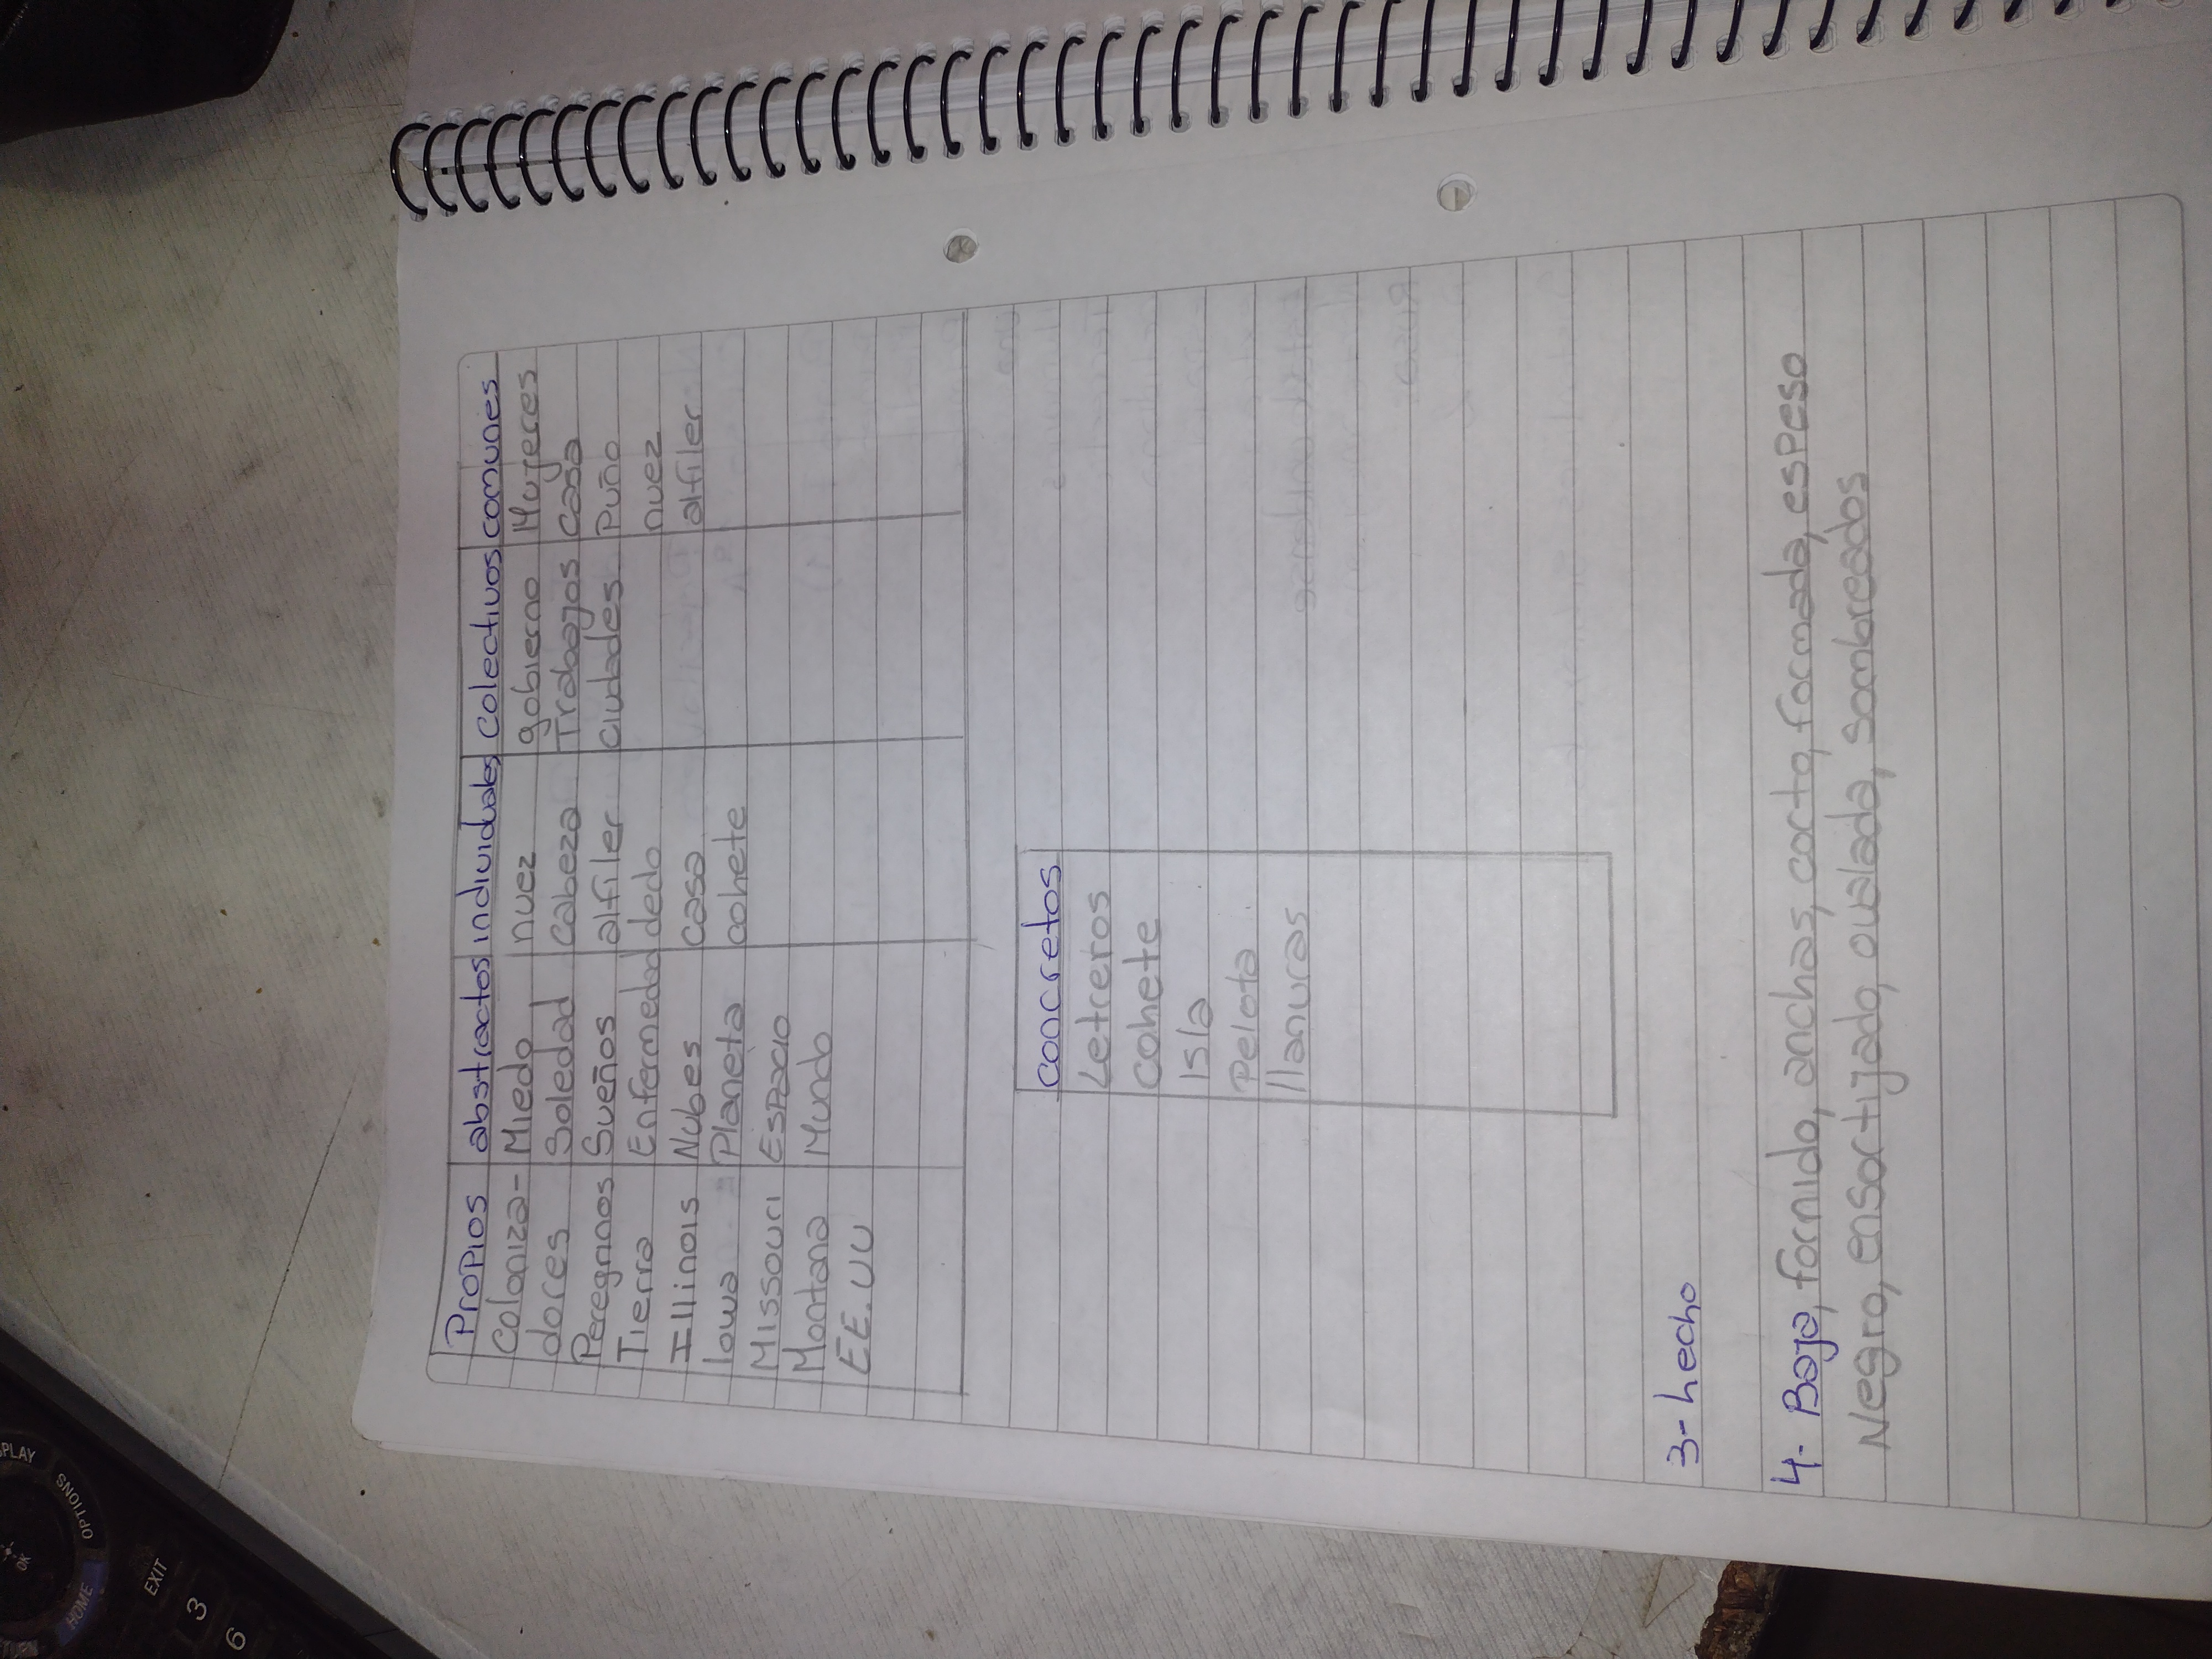 Propios abstractos individuales colectivos comunes
Coloniza- Miedo nuez gobierno Mujeres
dores Soledad Cabeza Trabajos casa
Peregrinos Sueños alfiler ciudades Puño
Tierra Enfermedad dedo nuez
Illinois Nubes casa alfiler
Iowa Planeta cohete
Missouri Espacio
Montana Mundo
EE.UU
concretos
Letreros
cohete
isla
Pelota
llanuras
3- hecho
4- Baja, fornido, anchas, corto, formada, espeso
Negro, ensortijado, ovalada, sombreados
DISPLAY
OPTIONS
OK
HOME
EXIT
3
6